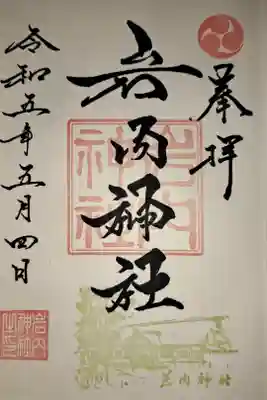 奉拝
岩内神社
令和五年五月四日
岩内神社
岩内神社